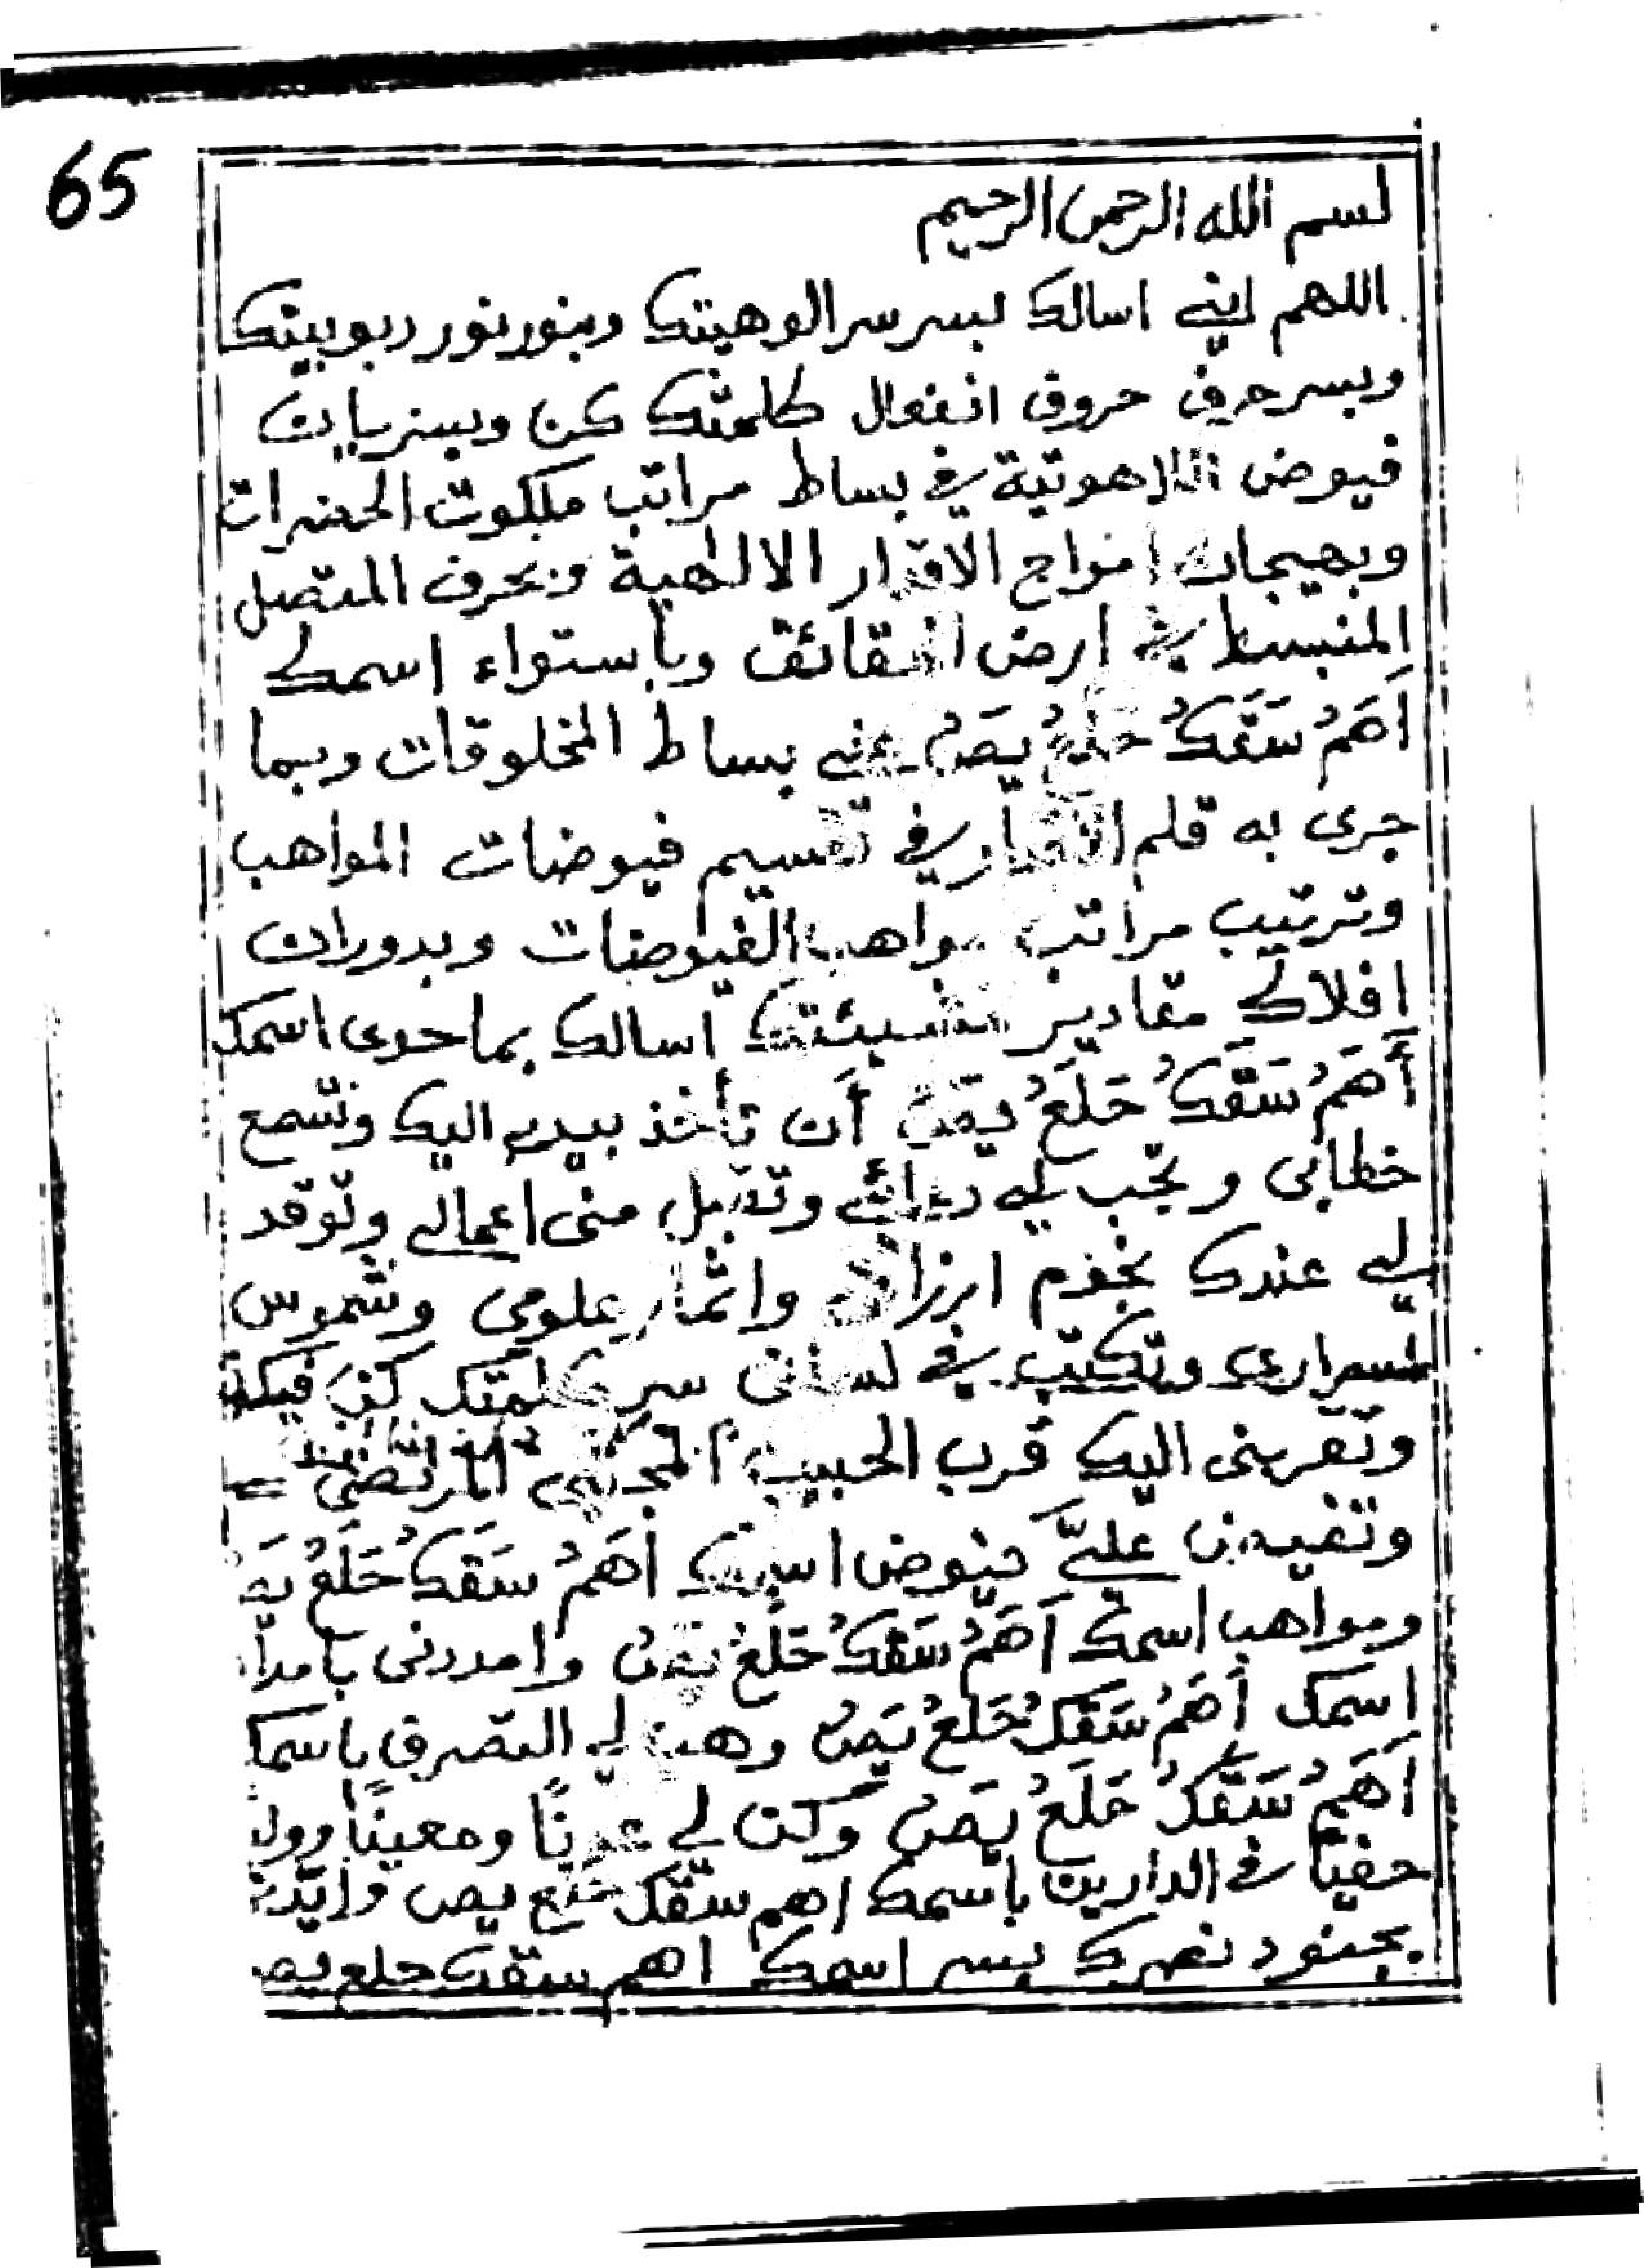 65
بسم الله الرحمن الرحيم
اللهم اني اسالك بسر سر الوهيتك وبنور نور ربوبيتك
وبسر حرف حروف انفعال كلمتك كن وبسريان
فيوض اللاهوتية في بساط مراتب ملكوت الحضرات
وبهيجان امواج الاقدار الالهية وبحرف المتصل
المنبسط في ارض الحقائق وباستواء اسمك
اَهَمُ سَقَكُ حَلَعُ يَصُ على بساط المخلوقات وبما
جرى به قلم الاقدار في تقسيم فيوضات المواهب
وترتيب مراتب مواهب الفيوضات وبدوران
افلاك مقادير مشيئتك اسالك بما حوى اسمك
أَهَمُ سَقَكُ حَلَعُ يَصُ أن تأخذ بيدي اليك وتسمع
خطابي وتجب لي دعائي وتقبل مني اعمالي وتوقد
لي عندك نجوم ارزاق واثمار علومي وشموس
اسراري وتكتب في لساني سر كلمتك كن فيكن
وتقربني اليك قرب الحبيب المجتبى المرتضى
وتفيض عليَّ فيوض اسمك اَهَمُ سَقَكُ حَلَعُ يَصُ
ومواهب اسمك اَهَمُ سَقَكُ حَلَعُ يَصُ وامددني بامداد
اسمك اَهَمُ سَقَكُ حَلَعُ يَصُ وهب لي التصرف باسمك
اَهَمُ سَقَكُ حَلَعُ يَصُ وكن لي عونًا ومعينًا ووليا
حفيّا في الدارين باسمك اهم سقك حلع يص وايّدني
بجنود نصرك بسر اسمك اهم سقك حلع يص